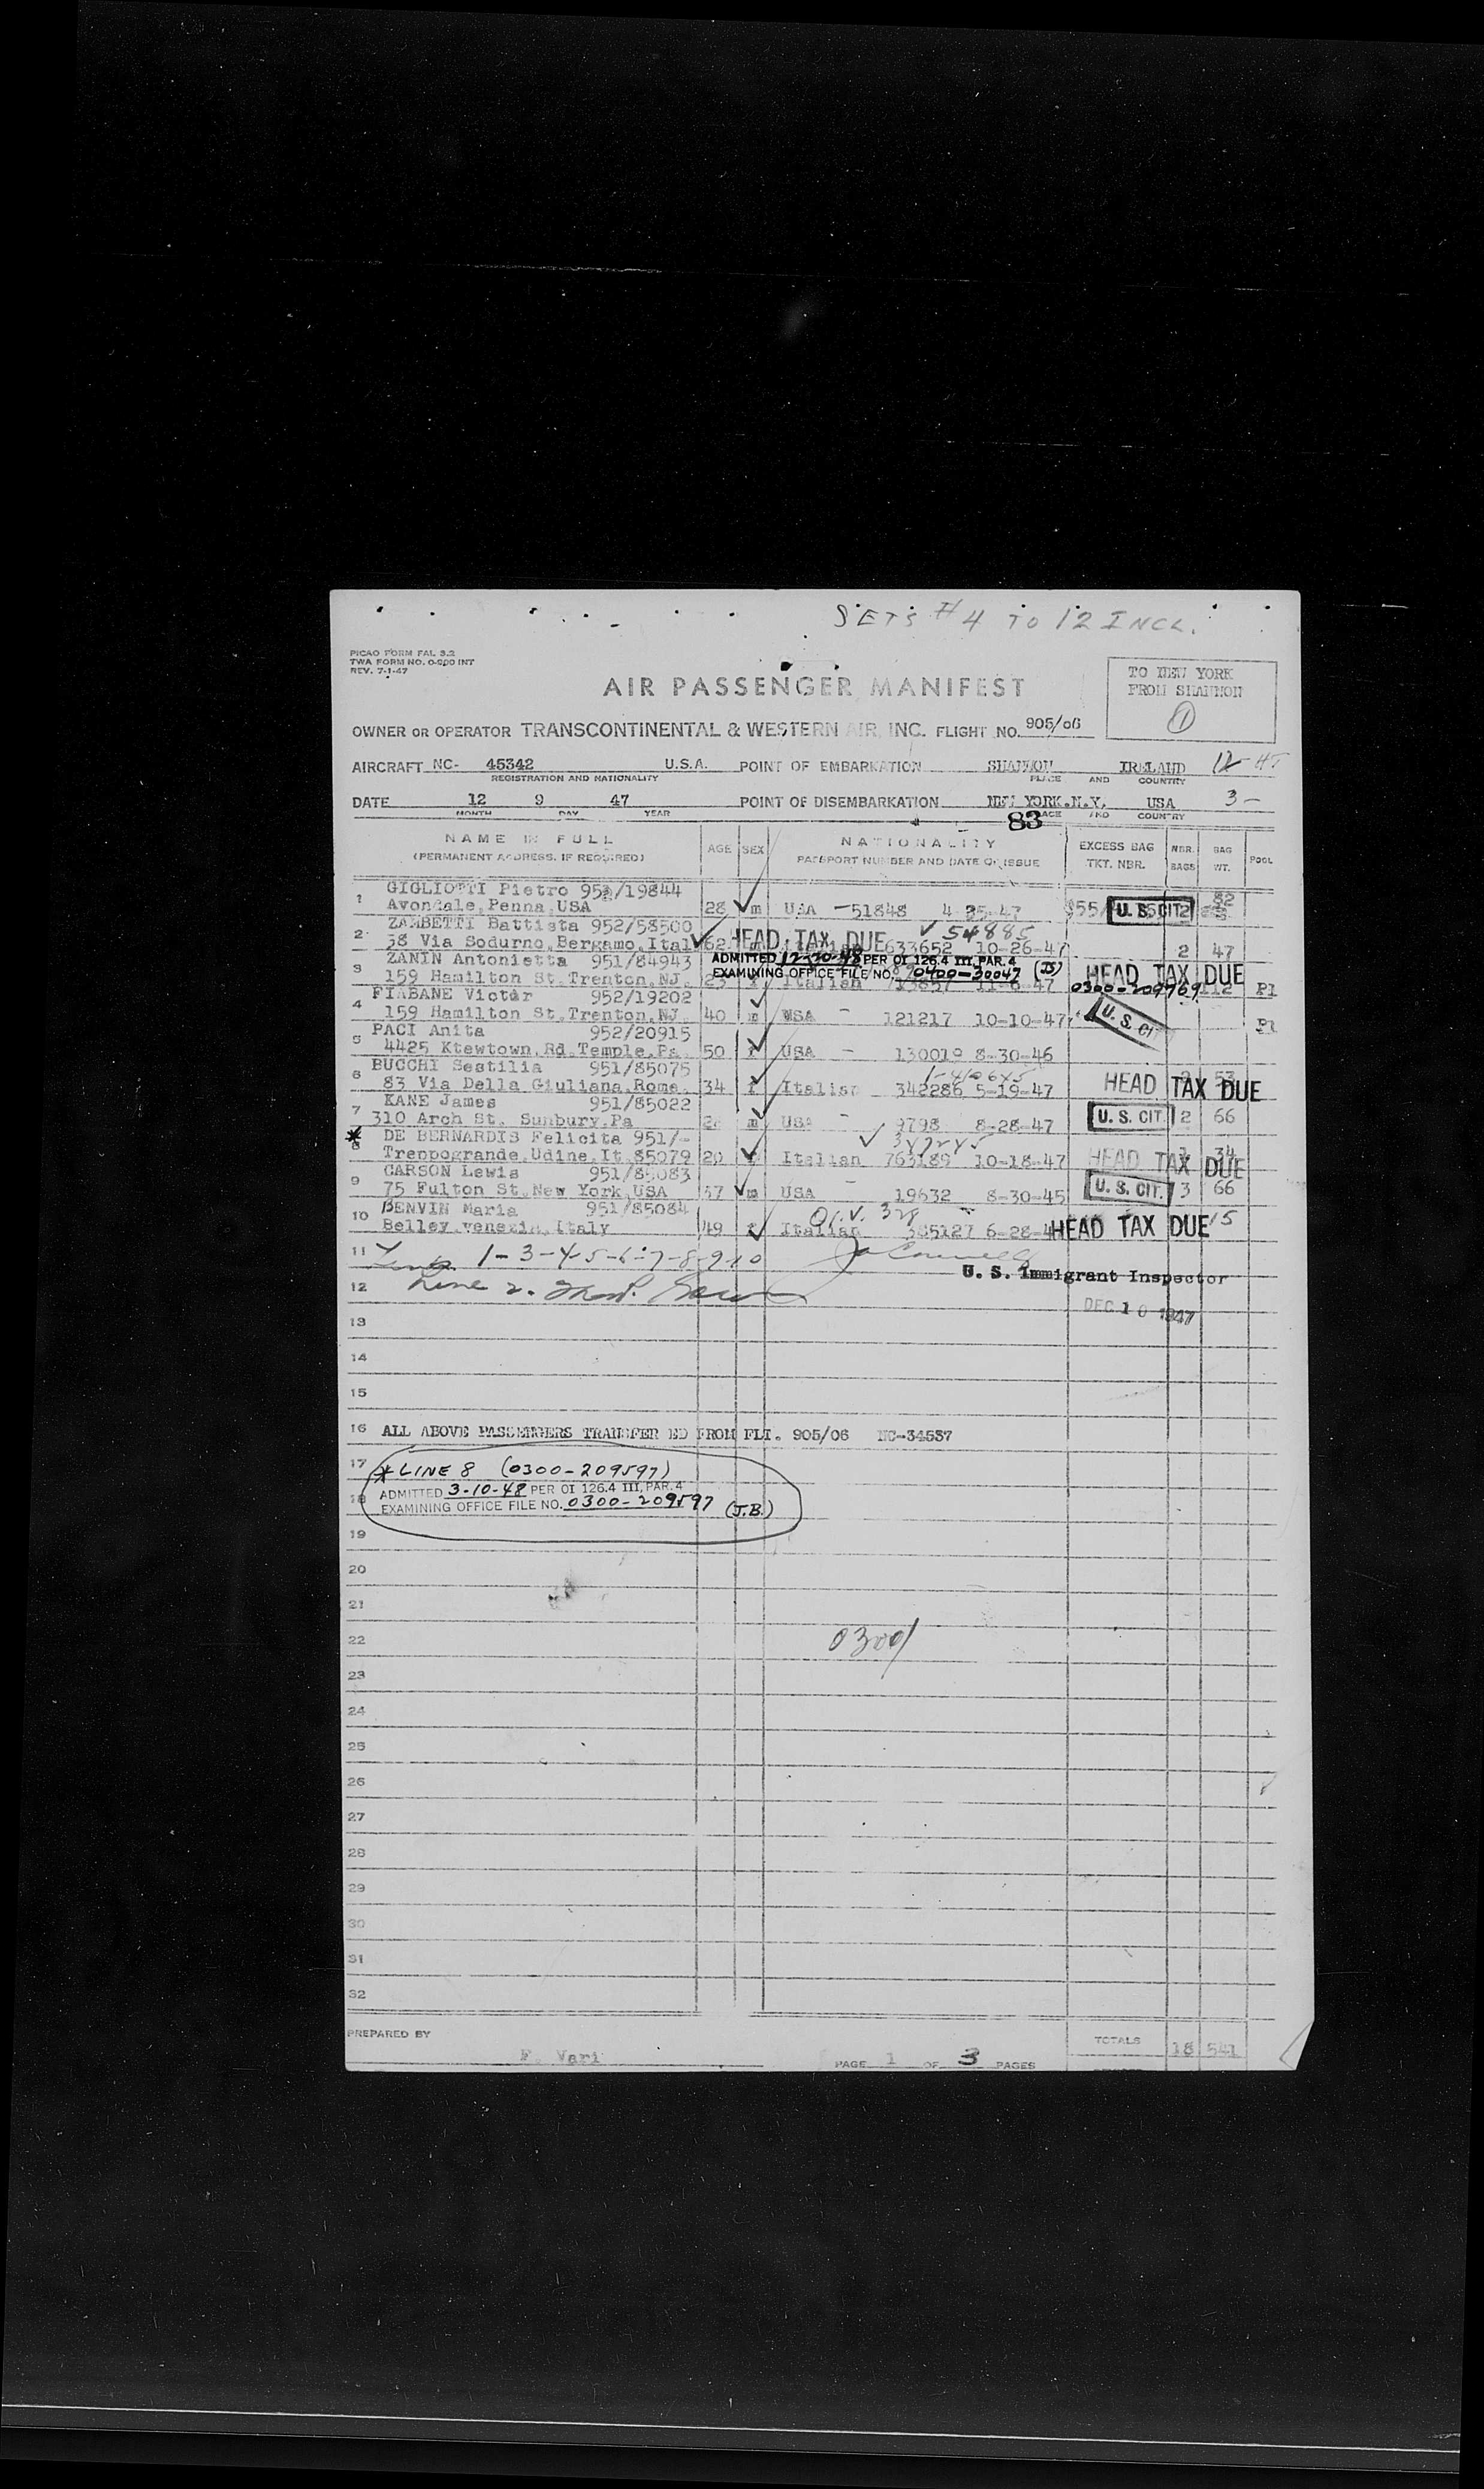 SETS #4 TO 12 INCL.
PICAO FORM FAL 3.2
TWA FORM NO. O-900 INT
REV. 7-1-47
TO NEW YORK
FROM SHANNON
1
AIR PASSENGER MANIFEST
OWNER OR OPERATOR TRANSCONTINENTAL & WESTERN AIR, INC. FLIGHT NO. 905/06
AIRCRAFT NC- 45342 U.S.A. POINT OF EMBARKATION SHANNON IRELAND 12
REGISTRATION AND NATIONALITY PLACE AND COUNTRY
DATE 12 9 47 POINT OF DISEMBARKATION NEW YORK.N.Y. USA 3-
MONTH DAY YEAR 83 PLACE AND COUNTRY
NAME IN FULL AGE SEX NATIONALITY EXCESS BAG NBR. BAG POOL
(PERMANENT ADDRESS, IF REQUIRED) PASSPORT NUMBER AND DATE OF ISSUE TKT. NBR. BAGS WT.
1 GIGLIOTTI Pietro 952/19844
Avondale, Penna, USA 28 m USA - 51848 4-25-47 U. S. CIT. 2
2 ZAMBETTI Battista 952/58500 HEAD TAX DUE 54885
58 Via Sodurno, Bergamo, Ital 62 633652 10-26-47 2 47
3 ZANIN Antonietta 951/84943 ADMITTED 12-20-48 PER OI 126.4 III, PAR. 4
EXAMINING OFFICE FILE NO. 0400-30047 (JS) HEAD TAX DUE
159 Hamilton St. Trenton, NJ. 23 f Italian 11-6-47 0300-209769 112 Pl
4 FIABANE Victor 952/19202
159 Hamilton St. Trenton, NJ. 40 m USA - 121217 10-10-47 U. S. CIT Pl
5 PACI Anita 952/20915
4425 Ktewtown, Rd. Temple, Pa. 50 f USA - 130019 8-30-46
6 BUCCHI Sestilia 951/85075
83 Via Della Giuliana, Roma. 34 f Italian 342286 5-19-47 HEAD TAX DUE
7 KANE James 951/85022
310 Arch St. Sunbury, Pa m USA - 9798 8-28-47 U. S. CIT. 2 66
* 8 DE BERNARDIS Felicita 951/-
Treppogrande, Udine, It 85079 20 Italian 763189 10-18-47 HEAD TAX DUE 34
9 CARSON Lewis 951/85083
75 Fulton St, New York, USA 37 m USA - 19632 8-30-45 U. S. CIT. 3 66
10 BENVIN Maria 951/85084
Belley, venezia, Italy 49 f Italian 385127 6-28-4 HEAD TAX DUE 15
11 1-3-4-5-6-7-8-9-10
U. S. Immigrant Inspector
12 Line 2.
DEC 10 1947
13
14
15
16 ALL ABOVE PASSENGERS TRANSFER ED FROM FLT. 905/06 NC-34537
17 * LINE 8 (0300-209597)
ADMITTED 3-10-48 PER OI 126.4 III, PAR. 4
18 EXAMINING OFFICE FILE NO. 0300-209597 (J.B.)
19
20
21
22 0300/
23
24
25
26
27
28
29
30
31
32
PREPARED BY TOTALS 18 541
F. Vari
PAGE 1 OF 3 PAGES